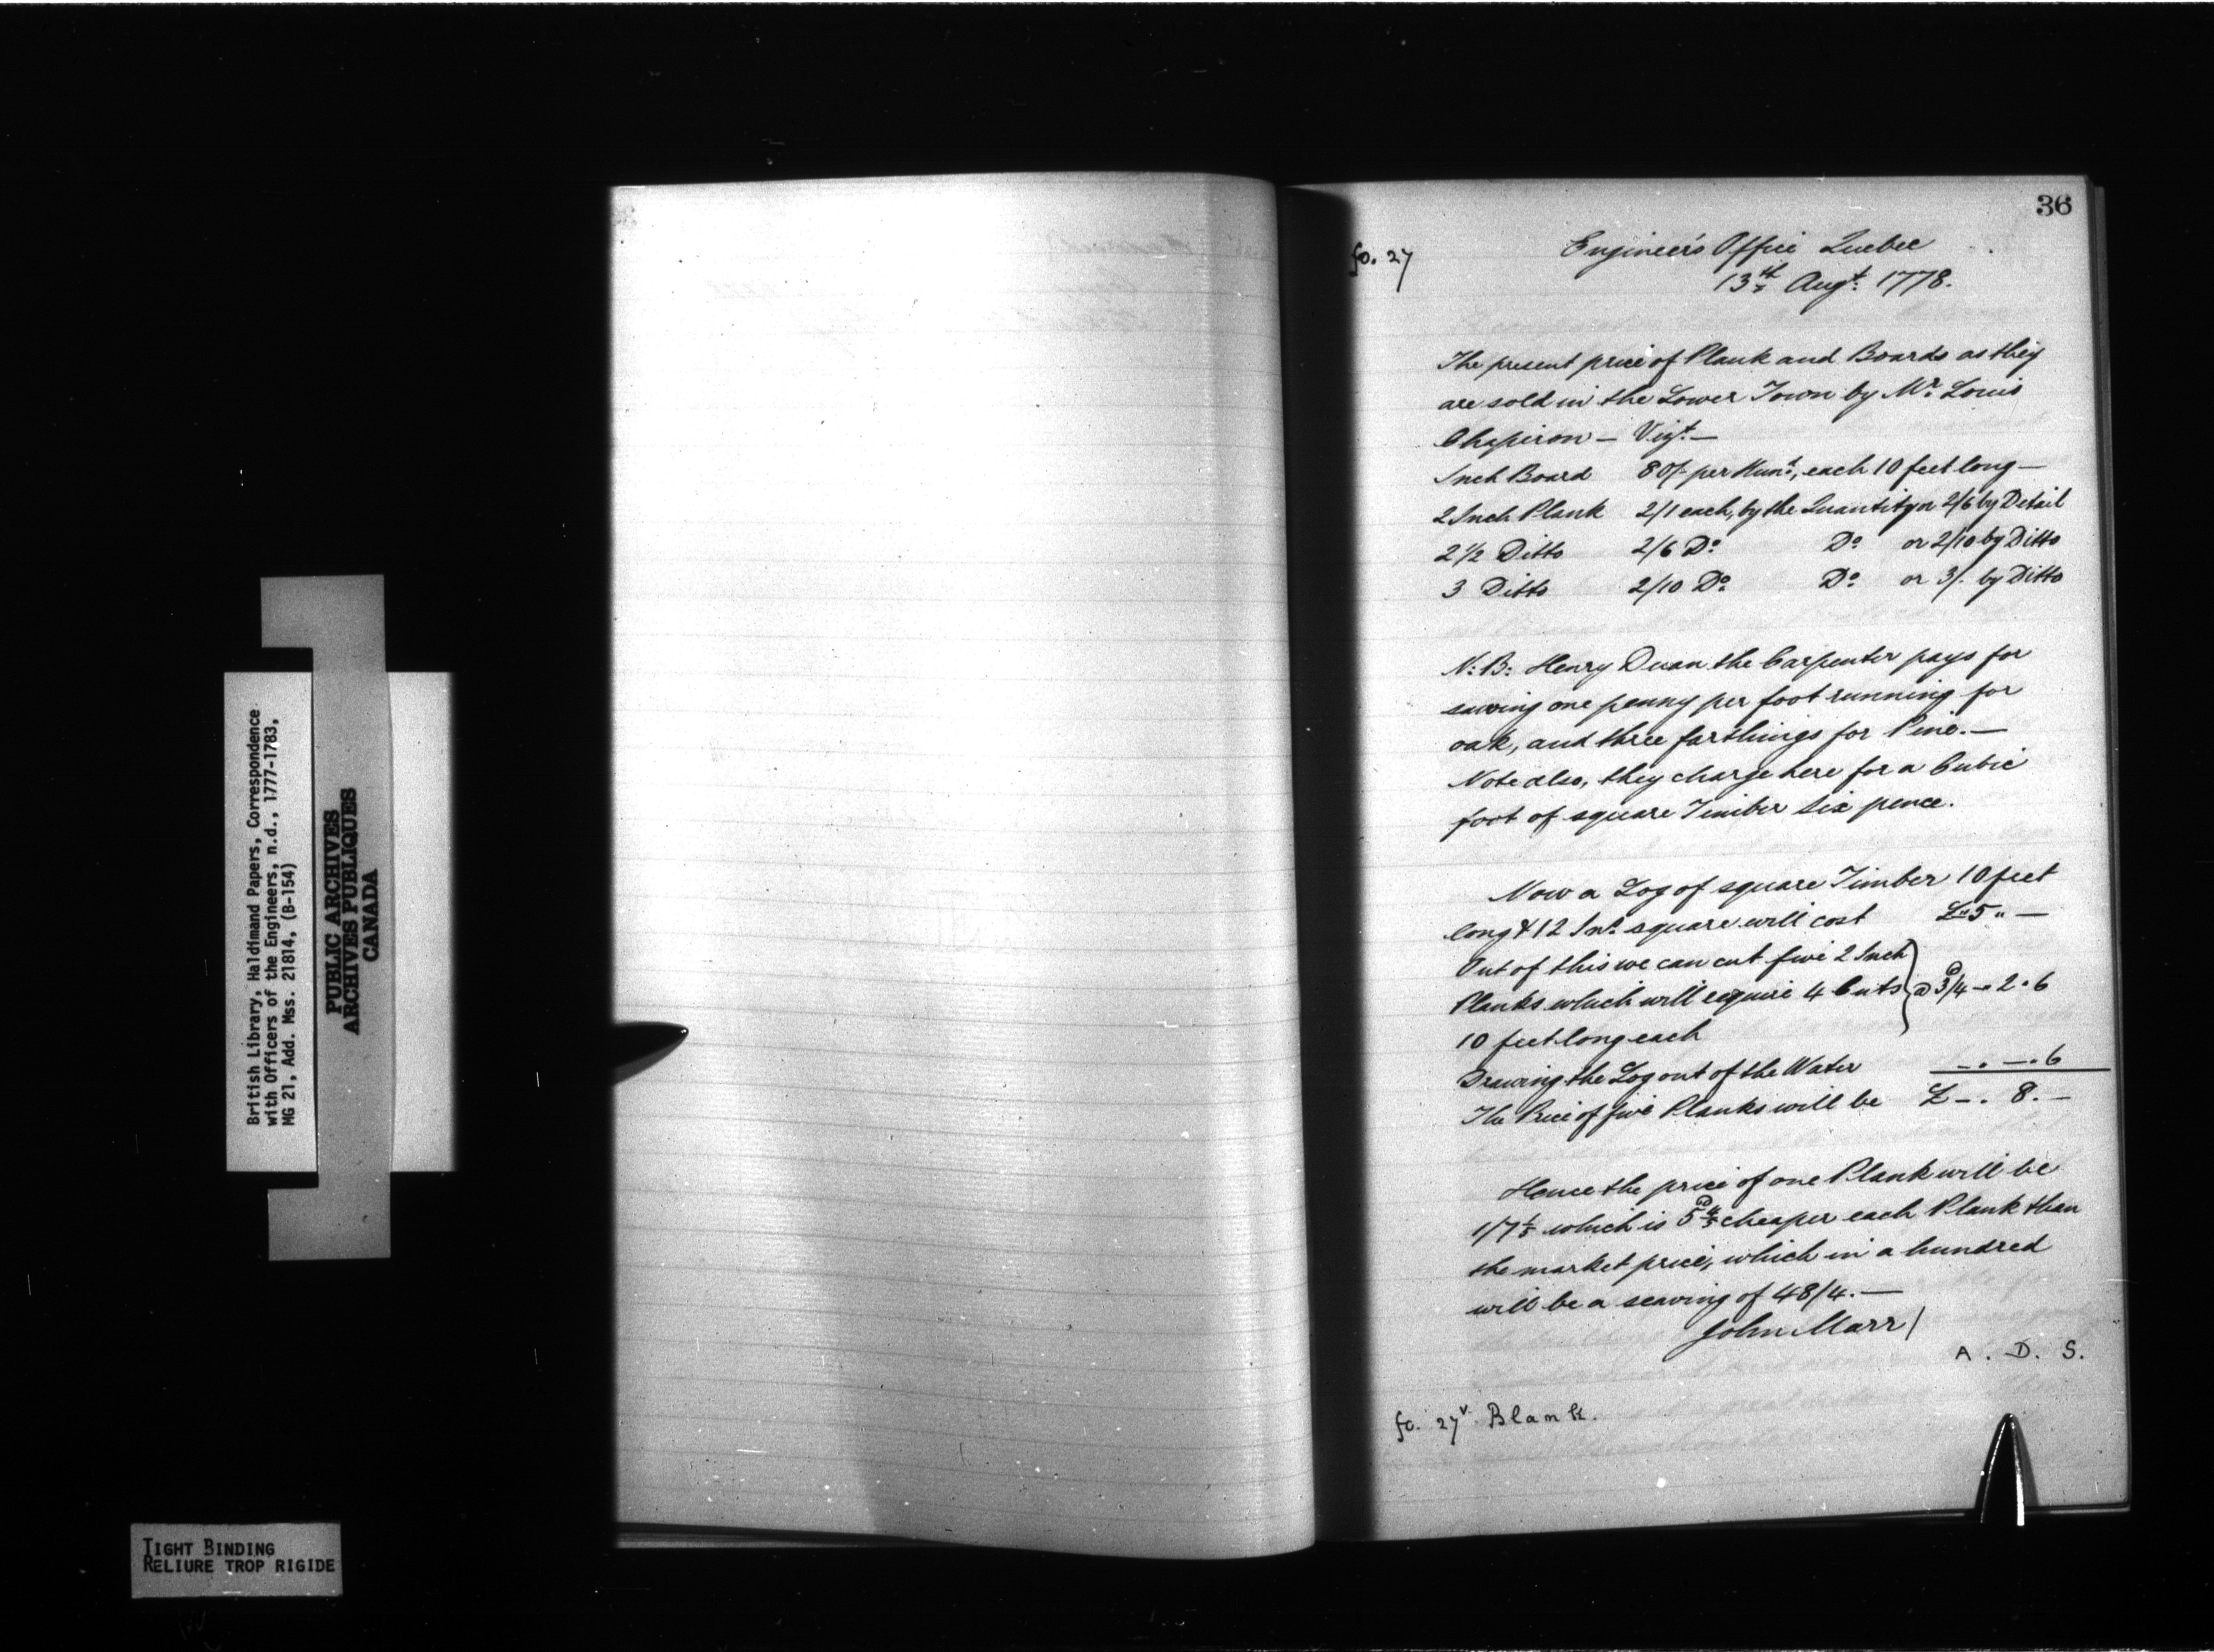 British Library, Haldimand Papers, Correspondence
with Officers of the Engineers, n.d., 1777-1783,
MG 21, Add. Mss. 21814, (B-154)
PUBLIC ARCHIVES
ARCHIVES PUBLIQUES
CANADA
TIGHT BINDING
RELIURE TROP RIGIDE
36
fo. 27
Engineer's Office Quebec
13th Augt. 1778.
The present price of Plank and Boards as they
are sold in the Lower Town by Mr. Louis
Chapiron — Vizt. —
Inch Board 80/- per Hund., each 10 feet long —
2 Inch Plank 2/1 each, by the Quantity or 2/6 by Detail
2 1/2 Ditto 2/6 Do. Do. or 2/10 by Ditto
3 Ditto 2/10 Do. Do. or 3/- by Ditto
N:B: Henry Duan the Carpenter pays for
sawing one penny per foot running for
oak, and three farthings for Pine. —
Note also, they charge here for a Cubic
foot of square Timber six pence.
Now a Log of square Timber 10 feet
long & 12 Ins. square will cost £ " 5 " —
Out of this we can cut five 2 Inch
Planks which will require 4 Cuts } @ 3/4d - " 2 " 6
10 feet long each
Drawing the Log out of the Water — . — . 6
The Price of five Planks will be £ — . 8 . —
Hence the price of one Plank will be
1/7 1/5 which is 5d 4/5 cheaper each Plank than
the market price, which in a hundred
will be a seaving of 48/4. —
John Marr /
A. D. S.
fo. 27v. Blank.